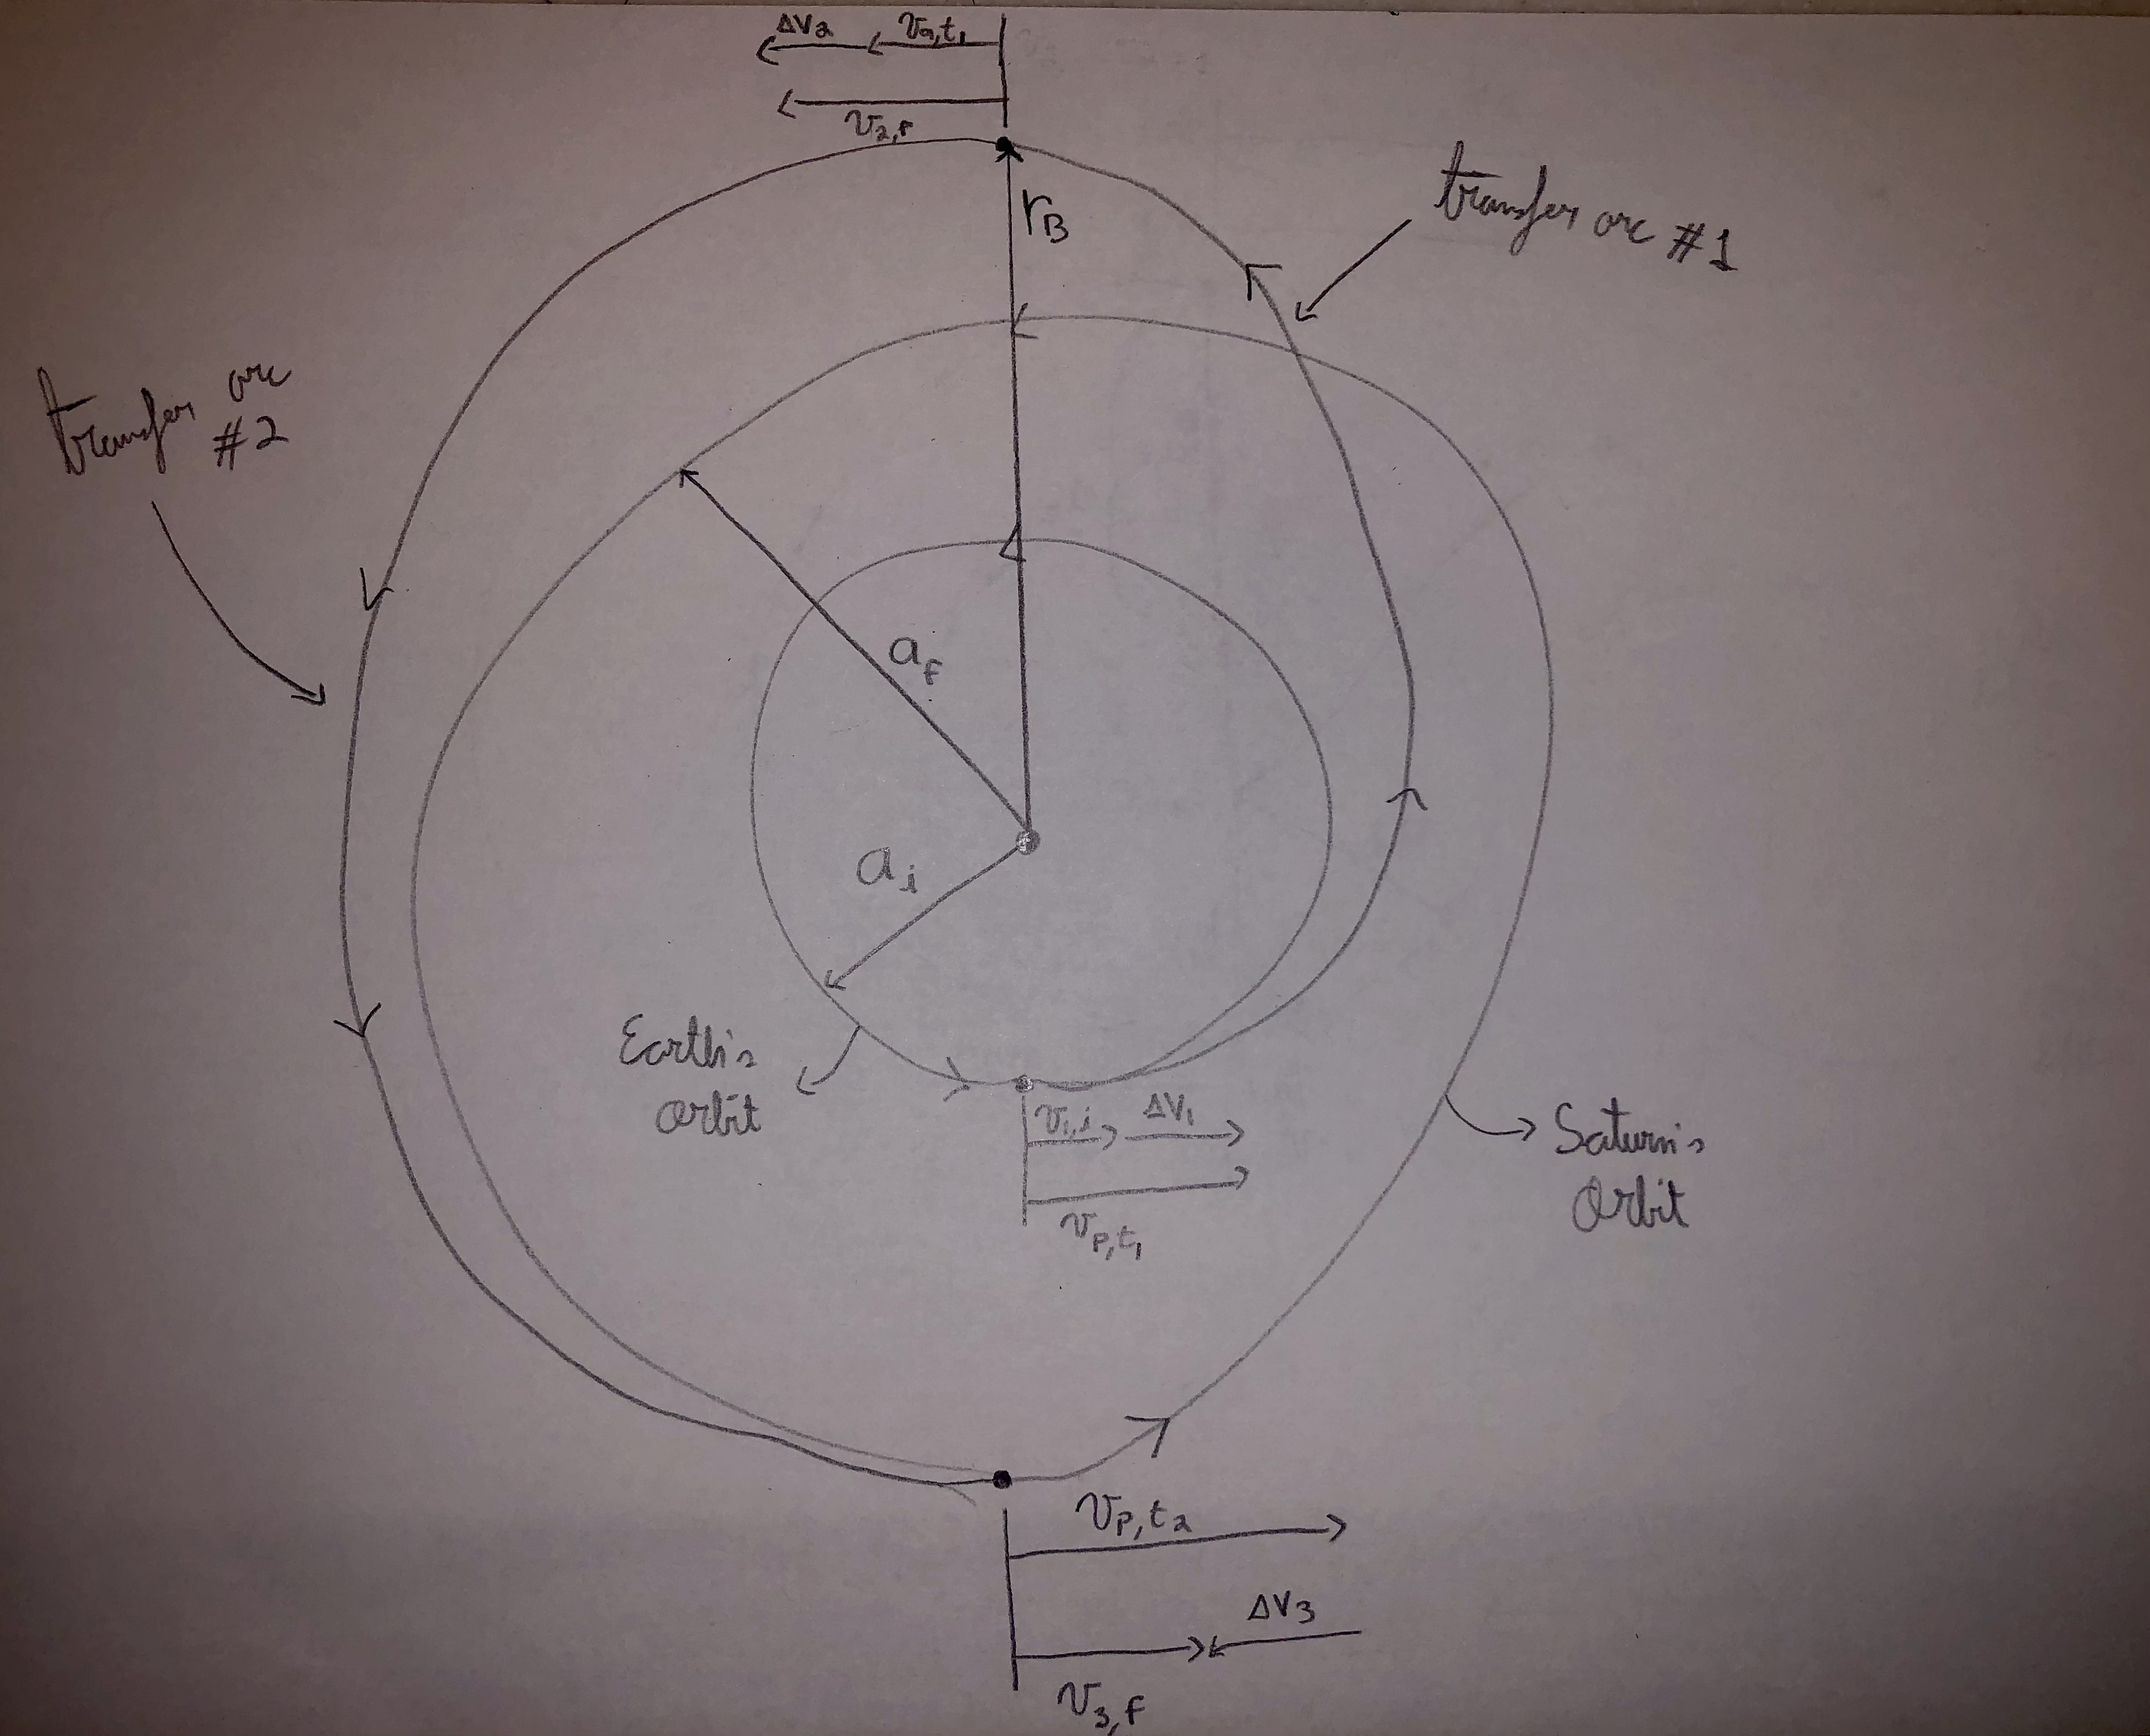 ΔV₂ v_{a,t₁}
v_{2,f}
r_B
transfer arc #1
transfer arc
#2
a_f
a_i
Earth's
orbit
v_{i,i} ΔV₁
v_{p,t₁}
Saturn's
Orbit
v_{p,t₂}
ΔV₃
v_{3,f}